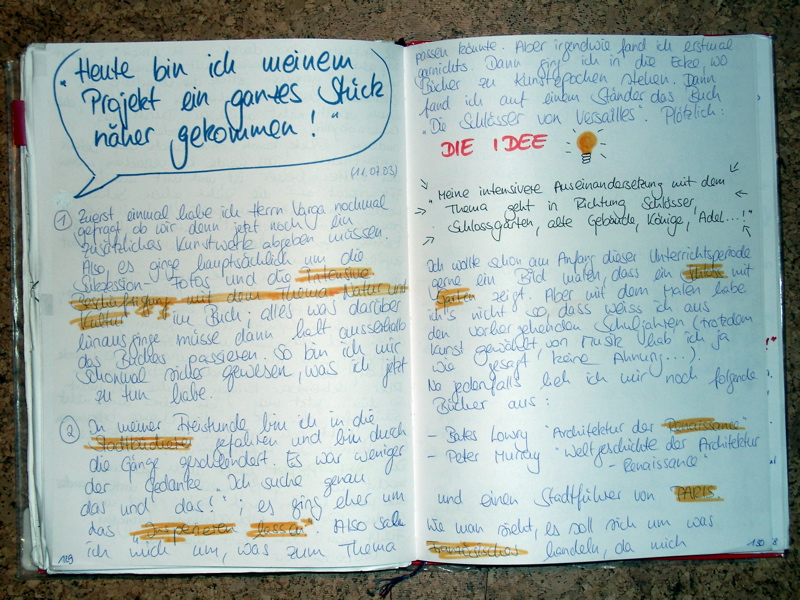 "Heute bin ich meinem
Projekt ein ganzes Stück
näher gekommen!"
(11.07.03)
1 Zuerst einmal habe ich Herrn Varga nochmal
gefragt ob wir denn jetzt noch ein
zusätzliches Kunstwerk abgeben müssen.
Also, es ginge hauptsächlich um die
- Fotos und die "Intensive
Beschäftigung mit dem Thema Natur und
Kultur" im Buch; alles was darüber
hinaus ginge müsse dann halt ausserhalb
des Buches passieren. So bin ich mir
schonmal sicher gewesen, was ich jetzt
zu tun habe.
2 In meiner Freistunde bin ich in die
Stadtbücherei gefahren und bin durch
die Gänge geschlendert. Es war weniger
der Gedanke "Ich suche genau
das und das!"; es ging eher um
das "Inspirieren lassen". Also sah
ich mich um, was zum Thema
129
passen könnte. Aber irgendwie fand ich erstmal
garnichts. Dann ging ich in die Ecke, wo
Bücher zu Kunstepochen stehen. Dann
fand ich auf einem Ständer das Buch
"Die Schlösser von Versailles". Plötzlich:
DIE IDEE
"Meine intensivere Auseinandersetzung mit dem
Thema geht in Richtung Schlösser,
Schlossgärten, alte Gebäude, Könige, Adel...!"
Ich wollte schon am Anfang dieser Unterrichtsperiode
gerne ein Bild malen, dass ein Schloss mit
Garten zeigt. Aber mit dem Malen habe
ich's nicht so, dass weiss ich aus
den vorhergehenden Schuljahren (trotzdem
Kunst gewählt von Musik hab ich ja
wie gesagt, keine Ahnung...).
Na jedenfalls lieh ich mir noch folgende
Bücher aus:
- Bates Lowry "Architektur der Renaissance"
- Peter Murray "Weltgeschichte der Architektur
- Renaissance"
und einen Stadtführer von PARIS
Wie man sieht, es soll sich um was
Französisches handeln, da mich
130